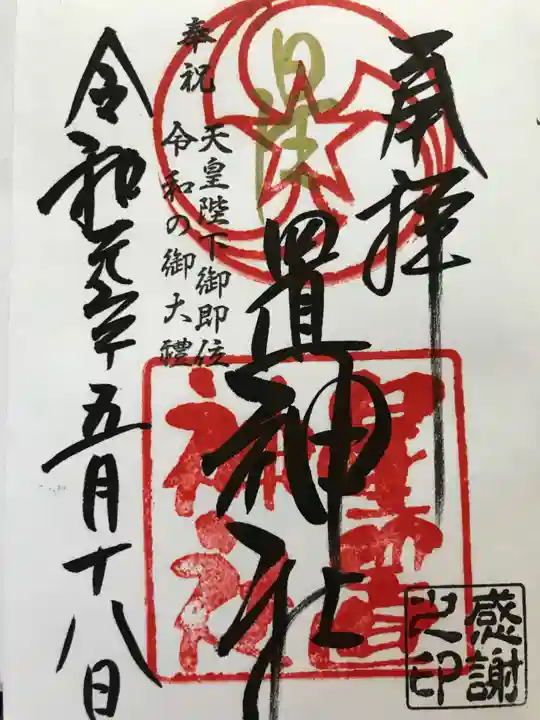 奉拝
置神社
星置
神社
奉祝
天皇陛下御即位
令和の御大禮
令和元年五月十八日
感謝
之印